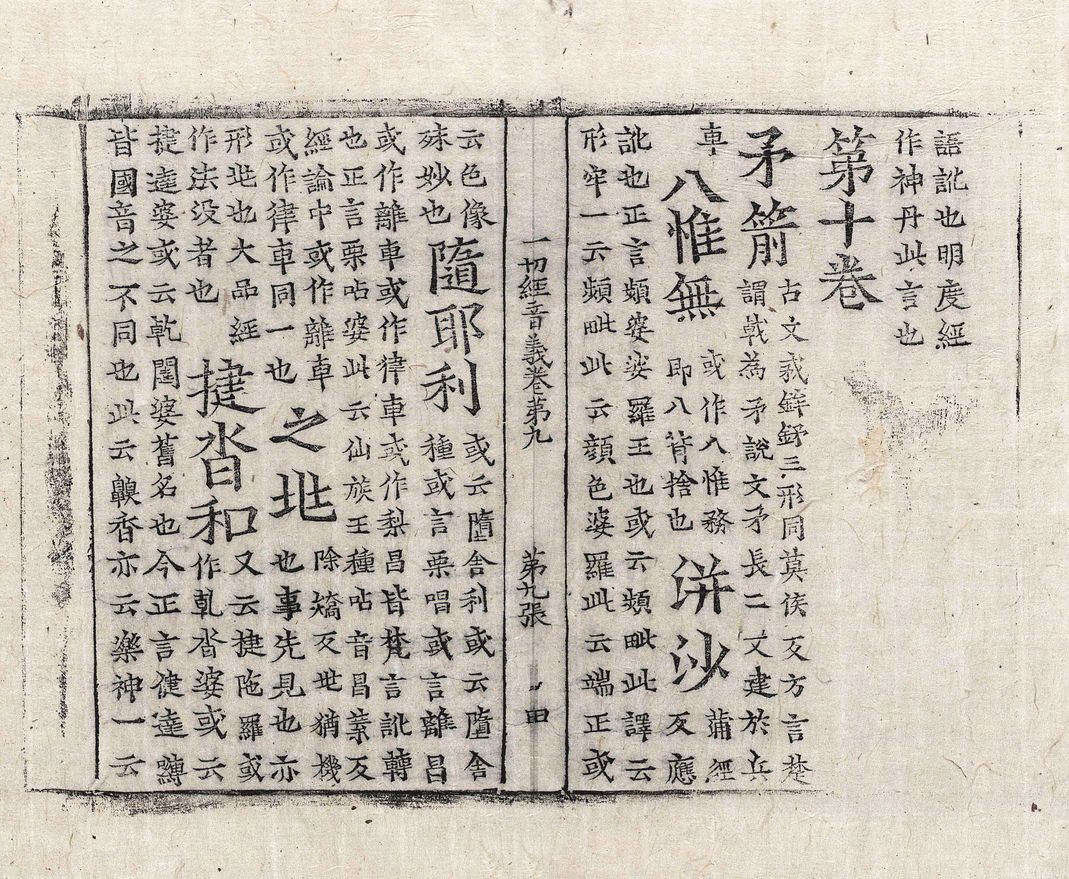 語訛也明度經
作神丹此言也
第十卷
矛箭
古文𥍡鉾𨥨三形同莫侯反方言楚
謂戟為矛說文矛長二丈建於兵
車
八惟無
或作八惟務
即八背捨也
洴沙
蒱經
反應
訛也正言頻婆娑羅王也或云頻毗此譯云
形牢一云頻毗此云顔色婆羅此云端正或
一切經音義卷第九 第九張 田
云色像
殊妙也
隨耶利
或云墮舍利或云墮舍
種或言栗唱或言離昌
或作離車或作律車或作梨昌皆梵言訛轉
也正言栗呫婆此云仙族王種呫音昌葉反
經論中或作離車
或作律車同一也
之兆
除矯反兆猶機
也事先見也亦
形兆也大品經
作法没者也
揵沓和
又云揵陁羅或
作乹沓婆或云
揵達婆或云乹闥婆舊名也今正言健達縛
皆國音之不同也此云齅香亦云樂神一云